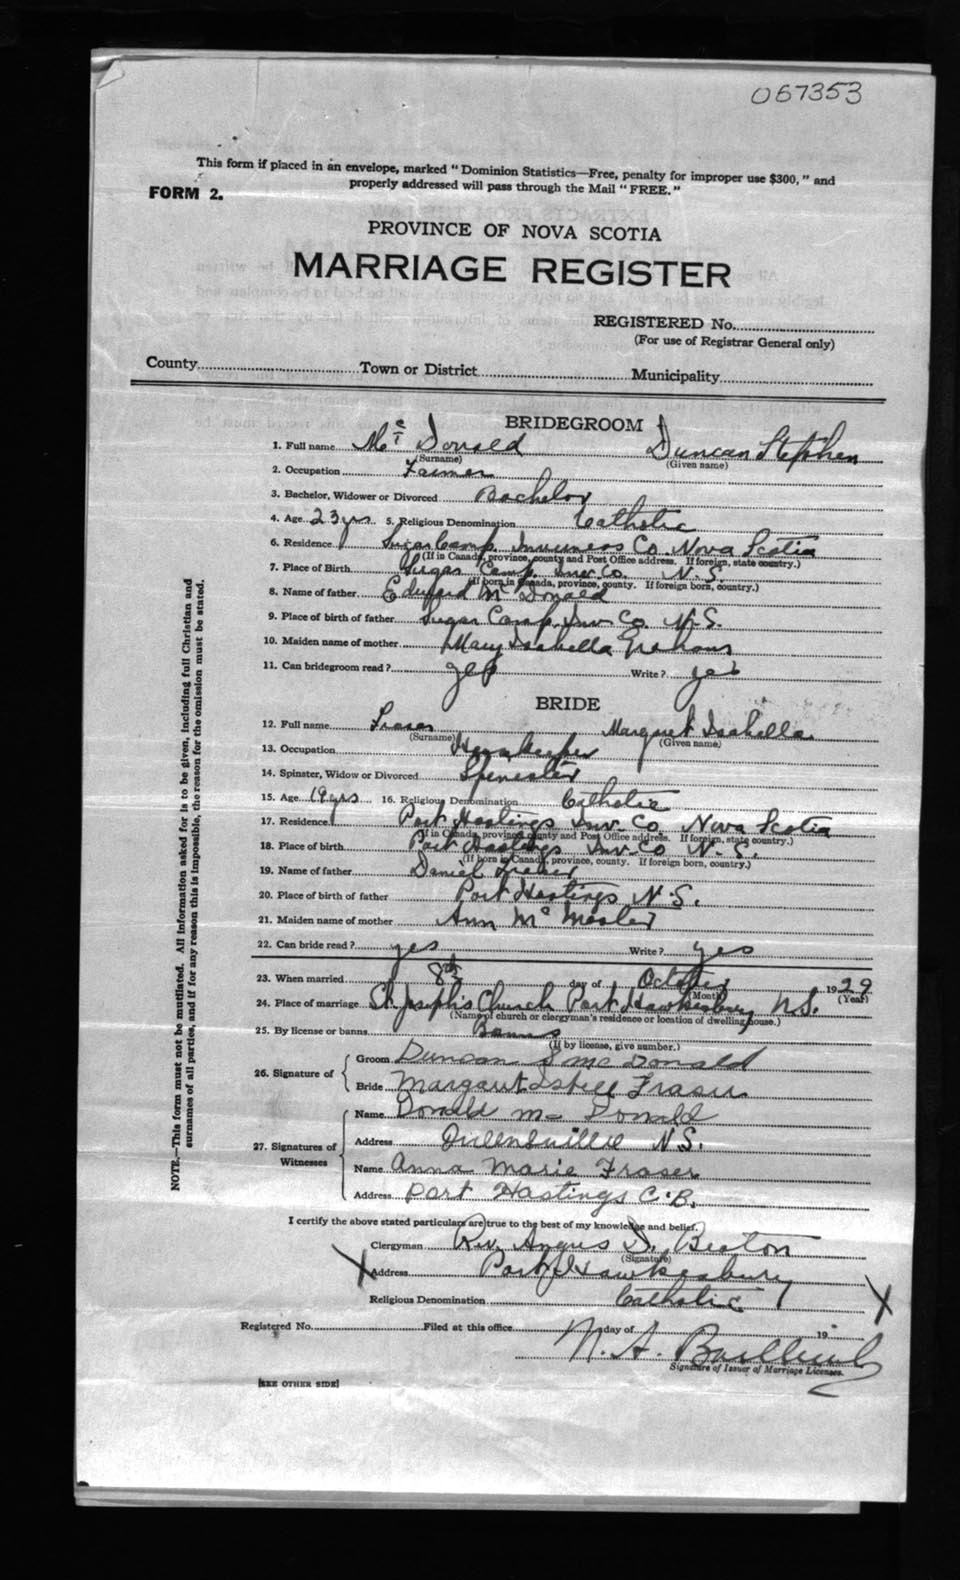 067353
This form if placed in an envelope, marked "Dominion Statistics—Free, penalty for improper use $300," and
properly addressed will pass through the Mail "FREE."
FORM 2.
PROVINCE OF NOVA SCOTIA
MARRIAGE REGISTER
REGISTERED No.
(For use of Registrar General only)
County Town or District Municipality
BRIDEGROOM
1. Full name Mc Donald Duncan Stephen
(Surname) (Given name)
2. Occupation Farmer
3. Bachelor, Widower or Divorced Bachelor
4. Age 23 yrs 5. Religious Denomination Catholic
6. Residence Sugar Camp Inverness Co. Nova Scotia
(If in Canada, province, county and Post Office address. If foreign, state country.)
7. Place of Birth Sugar Camp Inv Co. N.S.
(If born in Canada, province, county. If foreign born, country.)
8. Name of father Edward Mc Donald
9. Place of birth of father Sugar Camp Inv Co. N.S.
10. Maiden name of mother Mary Isabella
11. Can bridegroom read? yes Write? yes
BRIDE
12. Full name Fraser Margaret Isabella
(Surname) (Given name)
13. Occupation Housekeeper
14. Spinster, Widow or Divorced Spinister
15. Age 19 yrs 16. Religious Denomination Catholic
17. Residence Port Hastings Inv. Co. Nova Scotia
(If in Canada, province, county and Post Office address. If foreign, state country.)
18. Place of birth Port Hastings Inv. Co N.S.
(If born in Canada, province, county. If foreign born, country.)
19. Name of father Daniel Fraser
20. Place of birth of father Port Hastings N.S.
21. Maiden name of mother Ann Mc Master
22. Can bride read? yes Write? yes
23. When married 8th day of October 1929
(Month) (Year)
24. Place of marriage St. Joseph's Church Port Hawkesbury N.S.
(Name of church or clergyman's residence or location of dwelling house.)
25. By license or banns Banns
(If by license, give number.)
26. Signature of Groom Duncan S McDonald
Bride Margaret Isbell Fraser
27. Signatures of Witnesses Name Donald Mc Donald
Address N.S.
Name Anna Marie Fraser
Address Port Hastings C.B.
I certify the above stated particulars are true to the best of my knowledge and belief.
Clergyman Rev. Angus D. Beaton
(Signature)
X Address Port Hawkesbury
Religious Denomination Catholic X
Registered No. Filed at this office day of 19
N. A.
Signature of Issuer of Marriage Licenses.
[SEE OTHER SIDE]
NOTE.—This form must not be mutilated. All information asked for is to be given, including full Christian and
surnames of all parties, and if for any reason this is impossible, the reason for the omission must be stated.